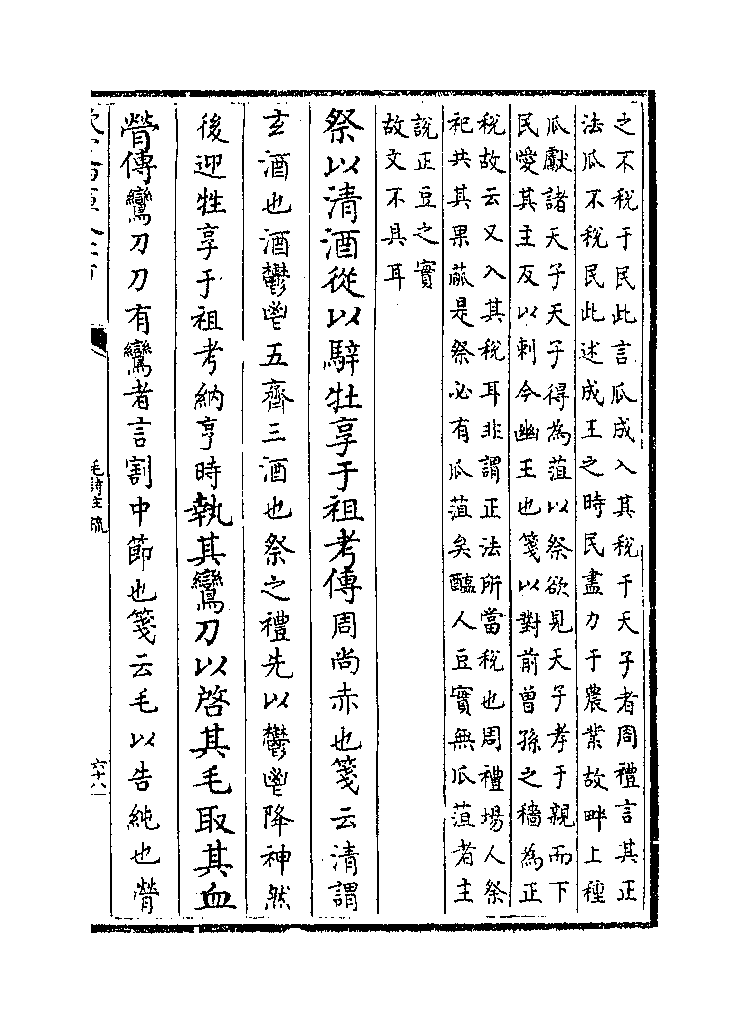 之不税于民此言瓜成入其税于天子者周禮言其正
法瓜不税民此述成王之時民盡力于農業故畔上種
瓜獻諸天子天子得為菹以祭欲見天子孝于親而下
民愛其主反以刺今幽王也箋以對前曽孫之穡為正
税故云又入其税耳非謂正法所當税也周禮場人祭
祀共其果蓏是祭必有瓜菹矣醢人豆實無瓜菹者主
說正豆之實
故文不具耳
祭以清酒從以騂牡享于祖考傳周尚赤也箋云清謂
𤣥酒也酒鬱鬯五齊三酒也祭之禮先以鬱鬯降神然
後迎牲享于祖考納亨時執其鸞刀以啓其毛取其血
膋傳鸞刀刀有鸞者言割中節也箋云毛以告純也膋
毛詩注疏
六十八